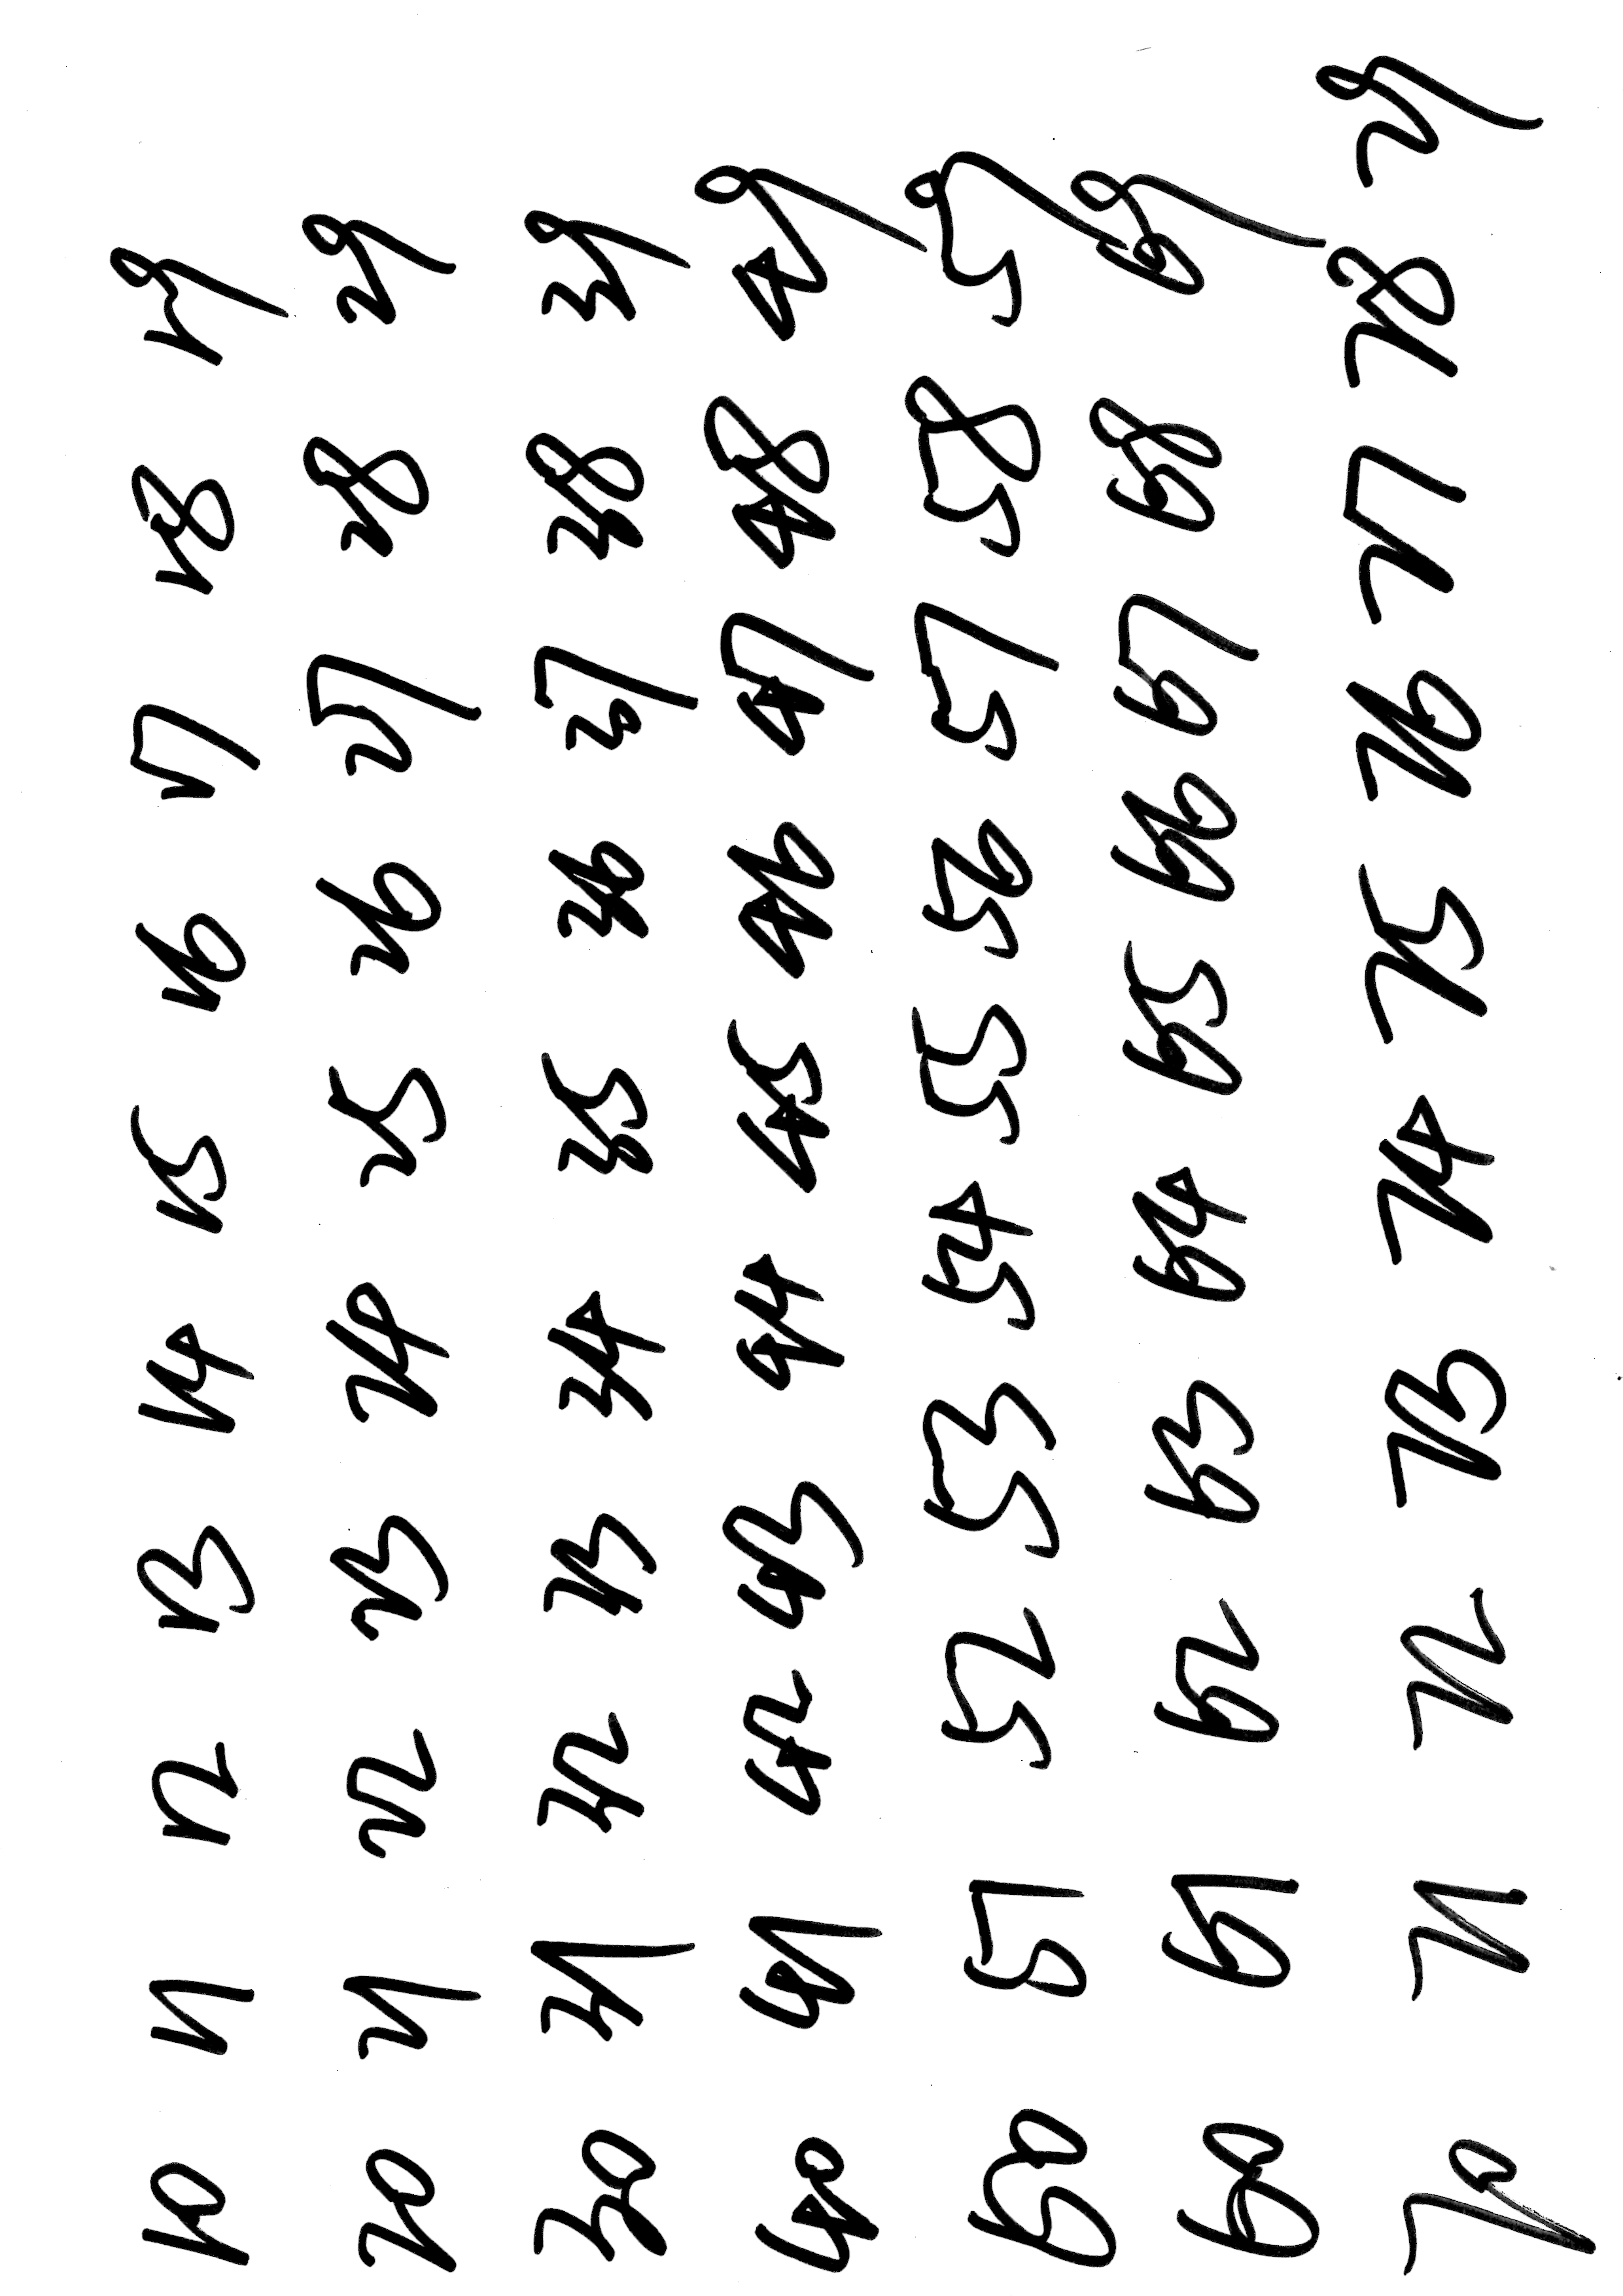 10 11 12 13 14 15 16 17 18 19
20 21 22 23 24 25 26 27 28 29
30 31 32 33 34 35 36 37 38 39
40 41 42 43 44 45 46 47 48 49
50 51 52 53 54 55 56 57 58 59
60 61 62 63 64 65 66 67 68 69
70 71 72 73 74 75 76 77 78 79